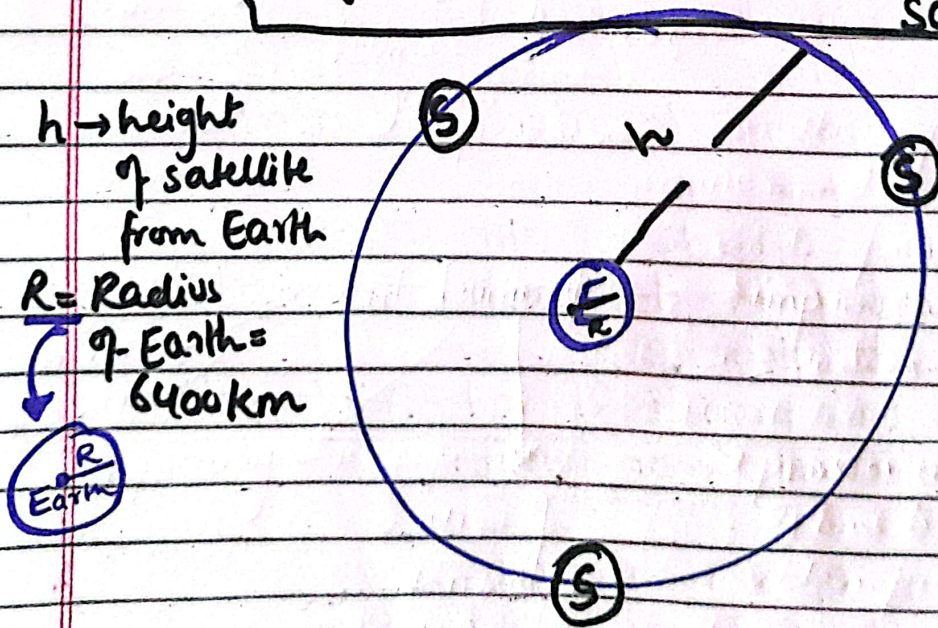 h → height
of satellite
from Earth
R = Radius
of Earth =
6400km
R
Earth
S
h
S
E
R
S